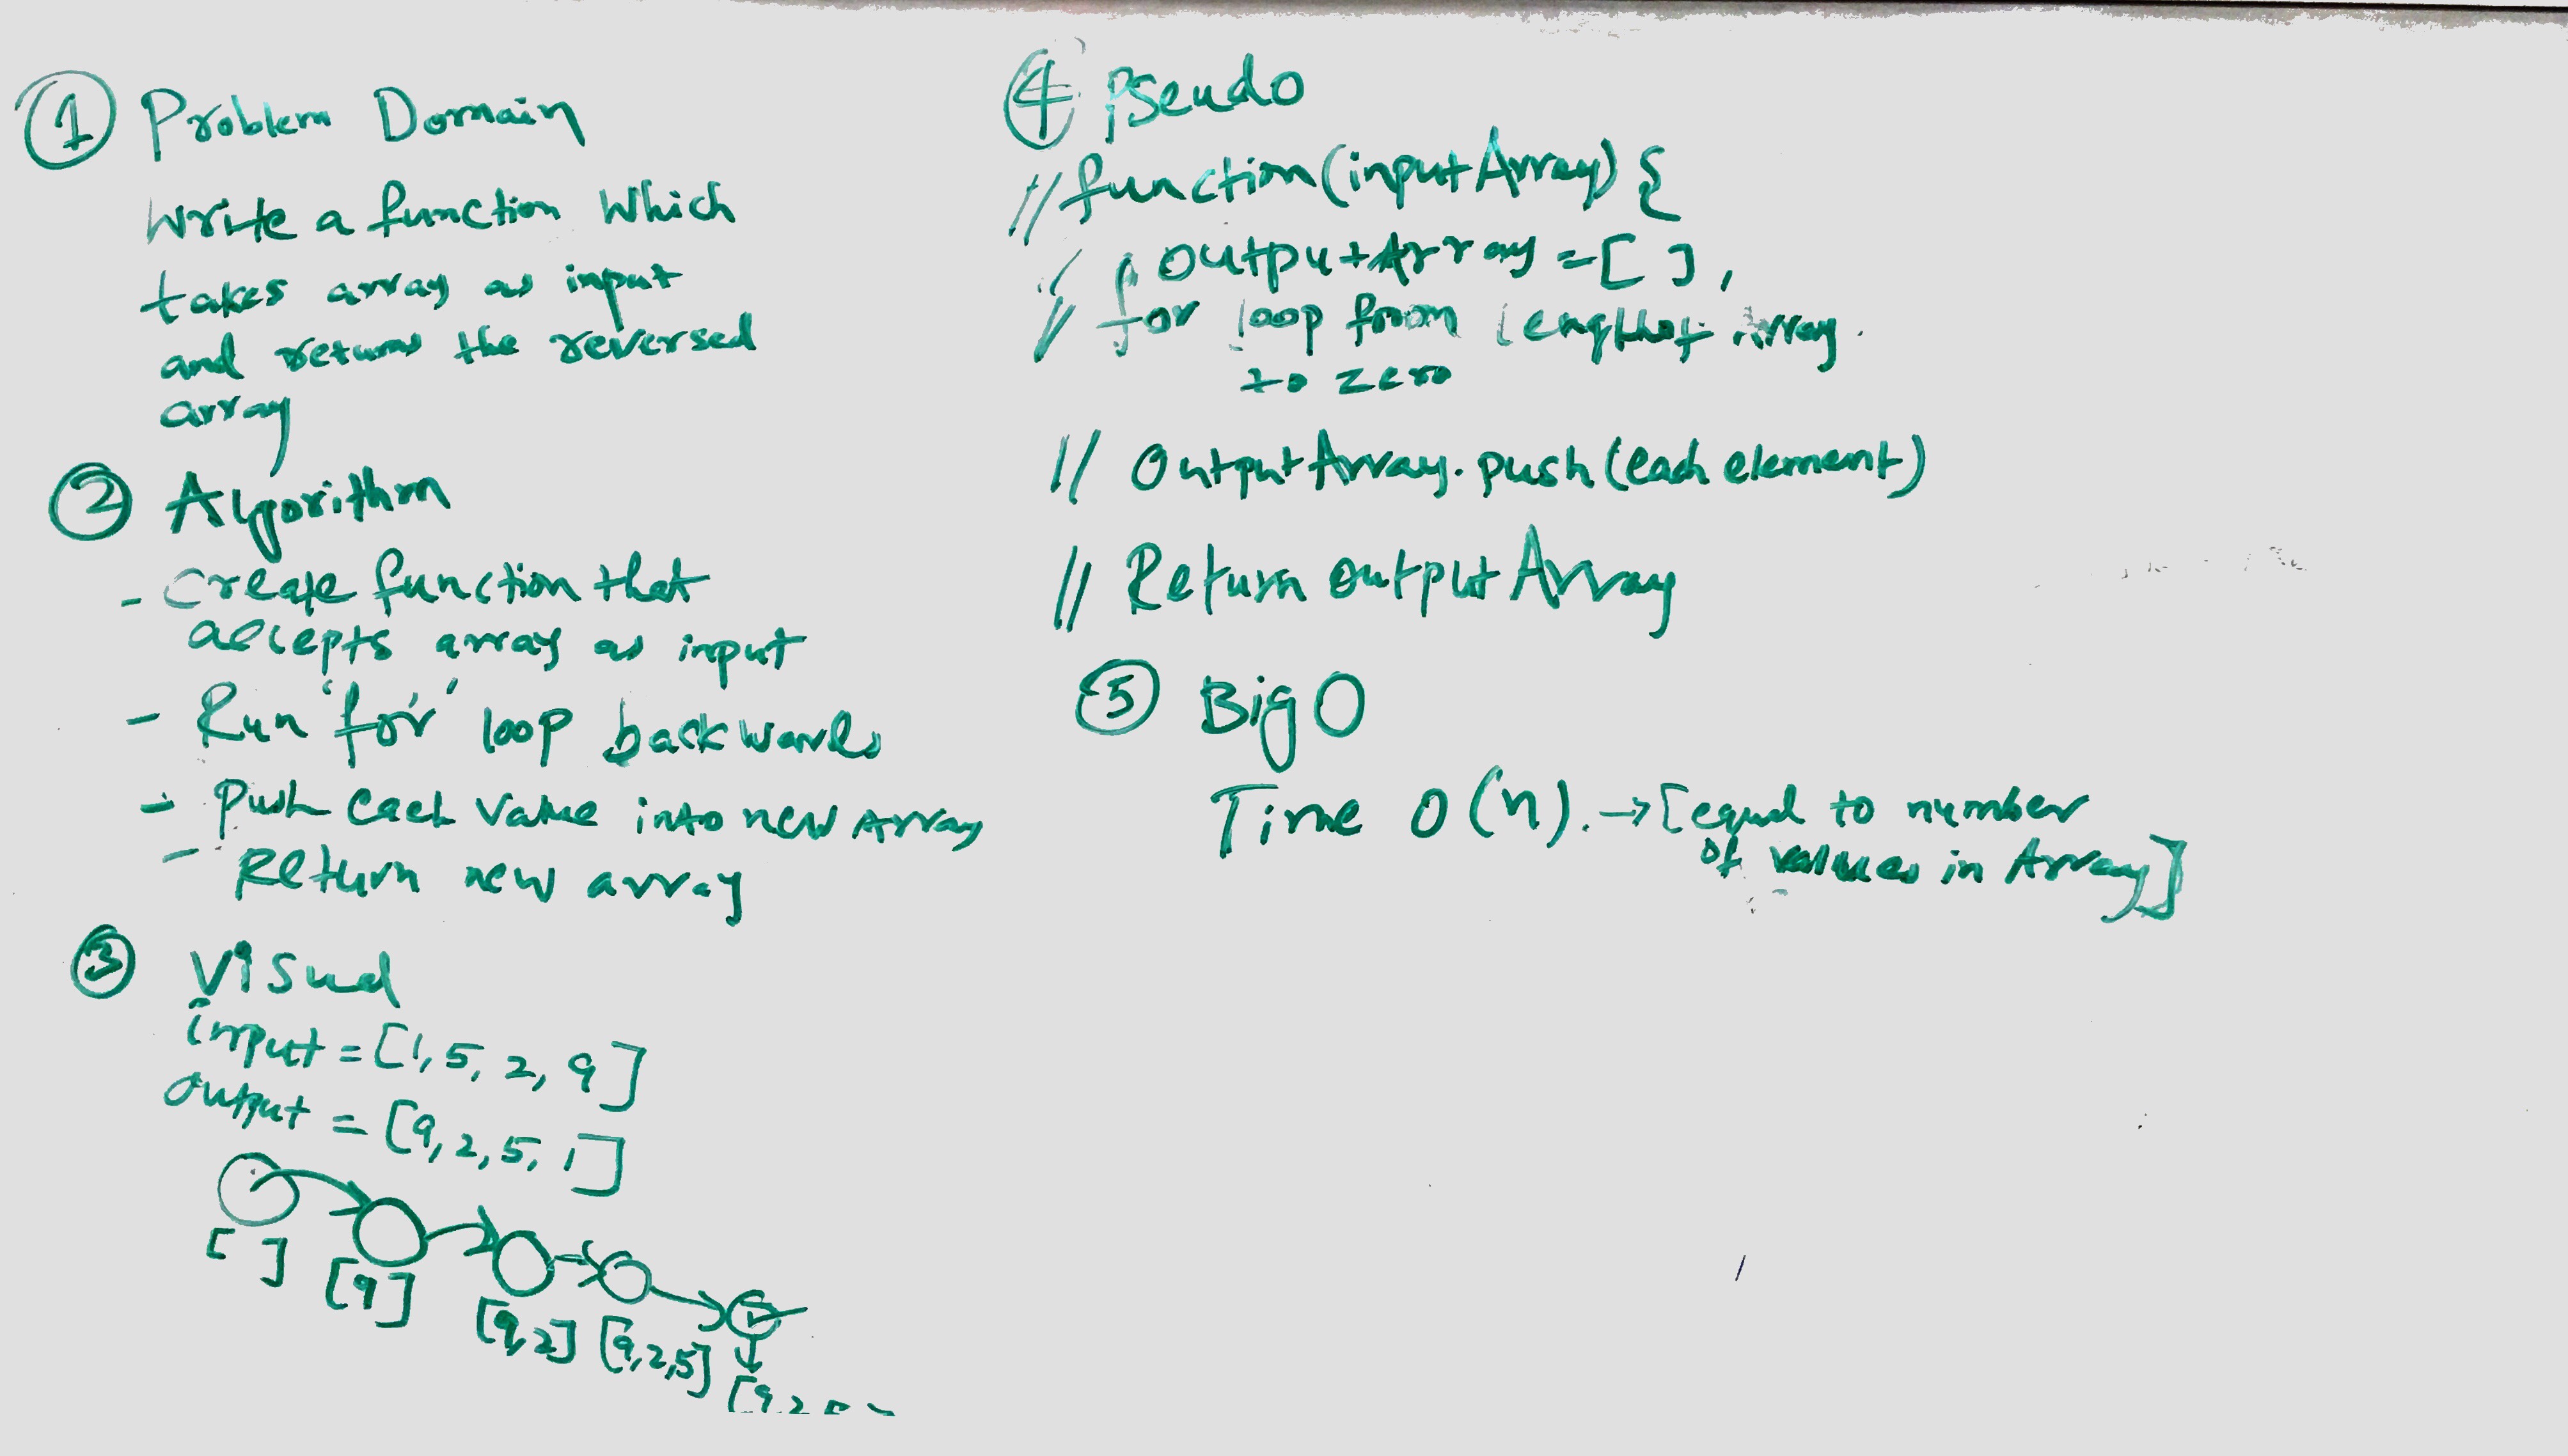 ① Problem Domain
Write a function Which
takes array as input
and returns the reversed
array
② Algorithm
- Create function that
accepts array as input
- Run 'for' loop backwards
- Push each value into new Array
- Return new array
③ Visual
input = [1, 5, 2, 9]
output = [9, 2, 5, 1]
[ ] [9] [9,2] [9,2,5]
[9, 2
④ Pseudo
// function(inputArray) {
// outputArray = [ ],
// for loop from length of Array.
to zero
// OutputArray.push(each element)
// Return outputArray
⑤ Big O
Time O(n). → [equal to number
of values in Array]